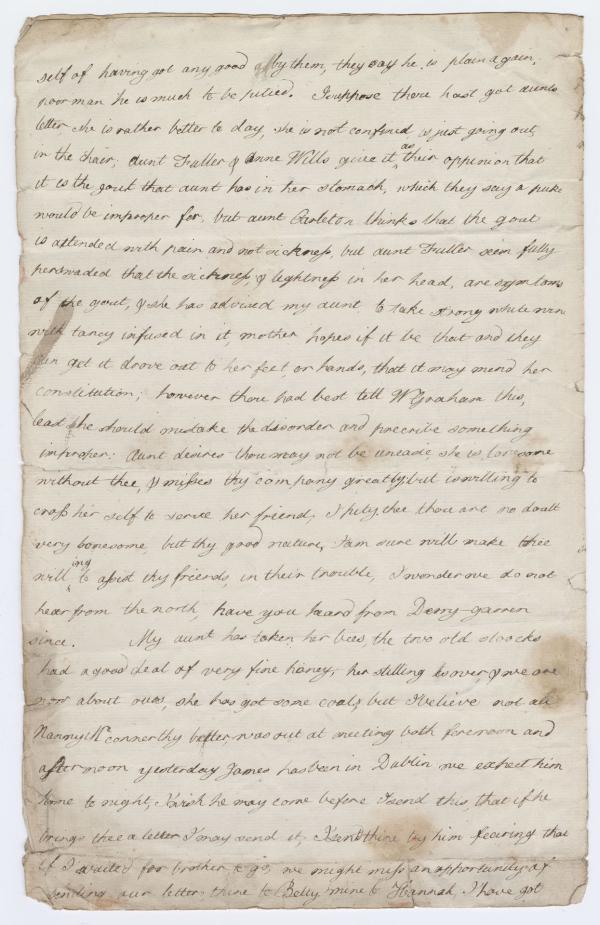 self of having got any good by them, they say he is plain again,
poor man he is much to be pitied. I suppose thou hast got aunts
letter she is rather better to day, she is not confined, is just going out
in the chair, aunt Fuller & Anne Wills give it as their oppinion that
it is the gout that aunt has in her stomach, which they say a puke
would be improper for, but aunt Carleton thinks that the gout
is attended with pain and not sickness, but aunt Fuller seem fully
perswaded that the sickness, & lightness in her head, are symtoms
of the gout, & she has advised my aunt to take strong white wine
with tancy infused in it, mother hopes if it be that and they
can get it drove out to her feet or hands, that it may mend her
constitution; however thou had best tell W Graham this,
least he should mistake the disorder and precribe something
improper: Aunt desires thou may not be uneasie, she is lonesome
without thee, & misses thy company greatly, but is willing to
cross her self to serve her friend, I pity thee thou art no doubt
very lonesome, but thy good nature, I am sure will make thee
willing to assist thy friends, in their trouble, I wonder we do not
hear from the north, have you heard from Derry-garren
since. My aunt has taken her bees, the two old stoocks
had a good deal of very fine honey, her stilling is over, & we are
now about ours, she has got some coals, but I believe not all
Nanny Mc conner thy better was out at meeting both forenoon and
afternoon yesterday James has been in Dublin we expect him
home to night, I wish he may come before I send this, that if he
brings thee a letter I may send it, I send thine by him fearing that
if I waited for brother to go, we might miss an opportunity of
sending our letters thine to Betty mine to Hannah, I have got